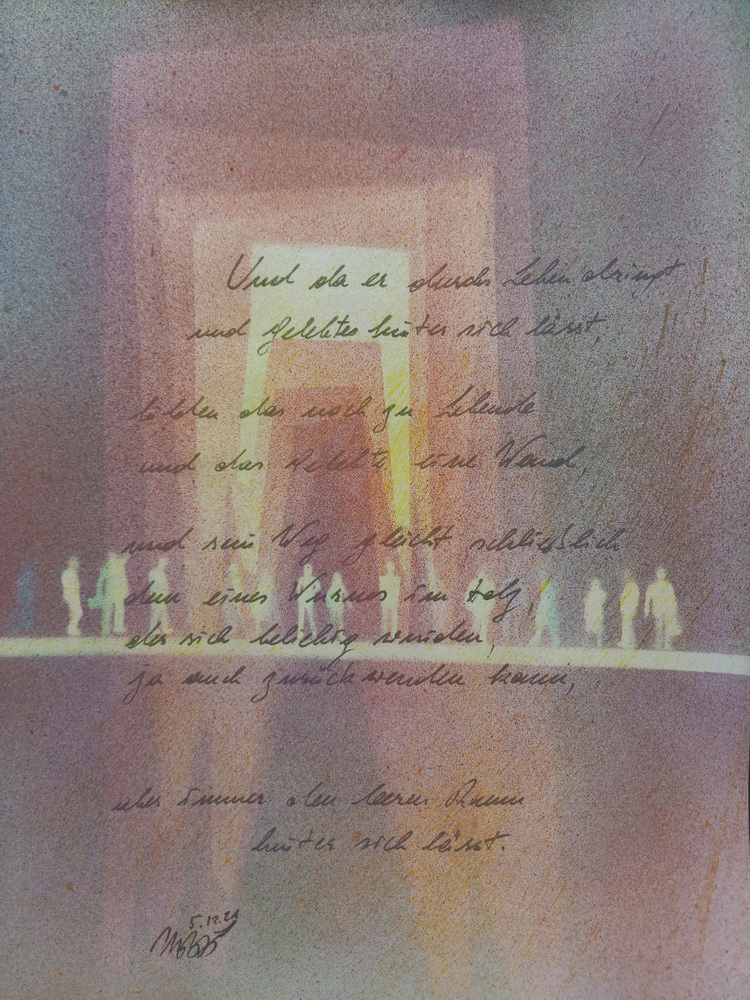 Und da er durchs Leben dringt
und gelebtes hinter sich lässt,
bilden das noch zu Lebende
und das Gelebte eine Wand,
und sein Weg gleicht schließlich
dem eines Wurmes im Holz,
der sich beliebig winden,
ja auch zurückwenden kann,
aber immer den leeren Raum
hinter sich lässt.
5.12.21